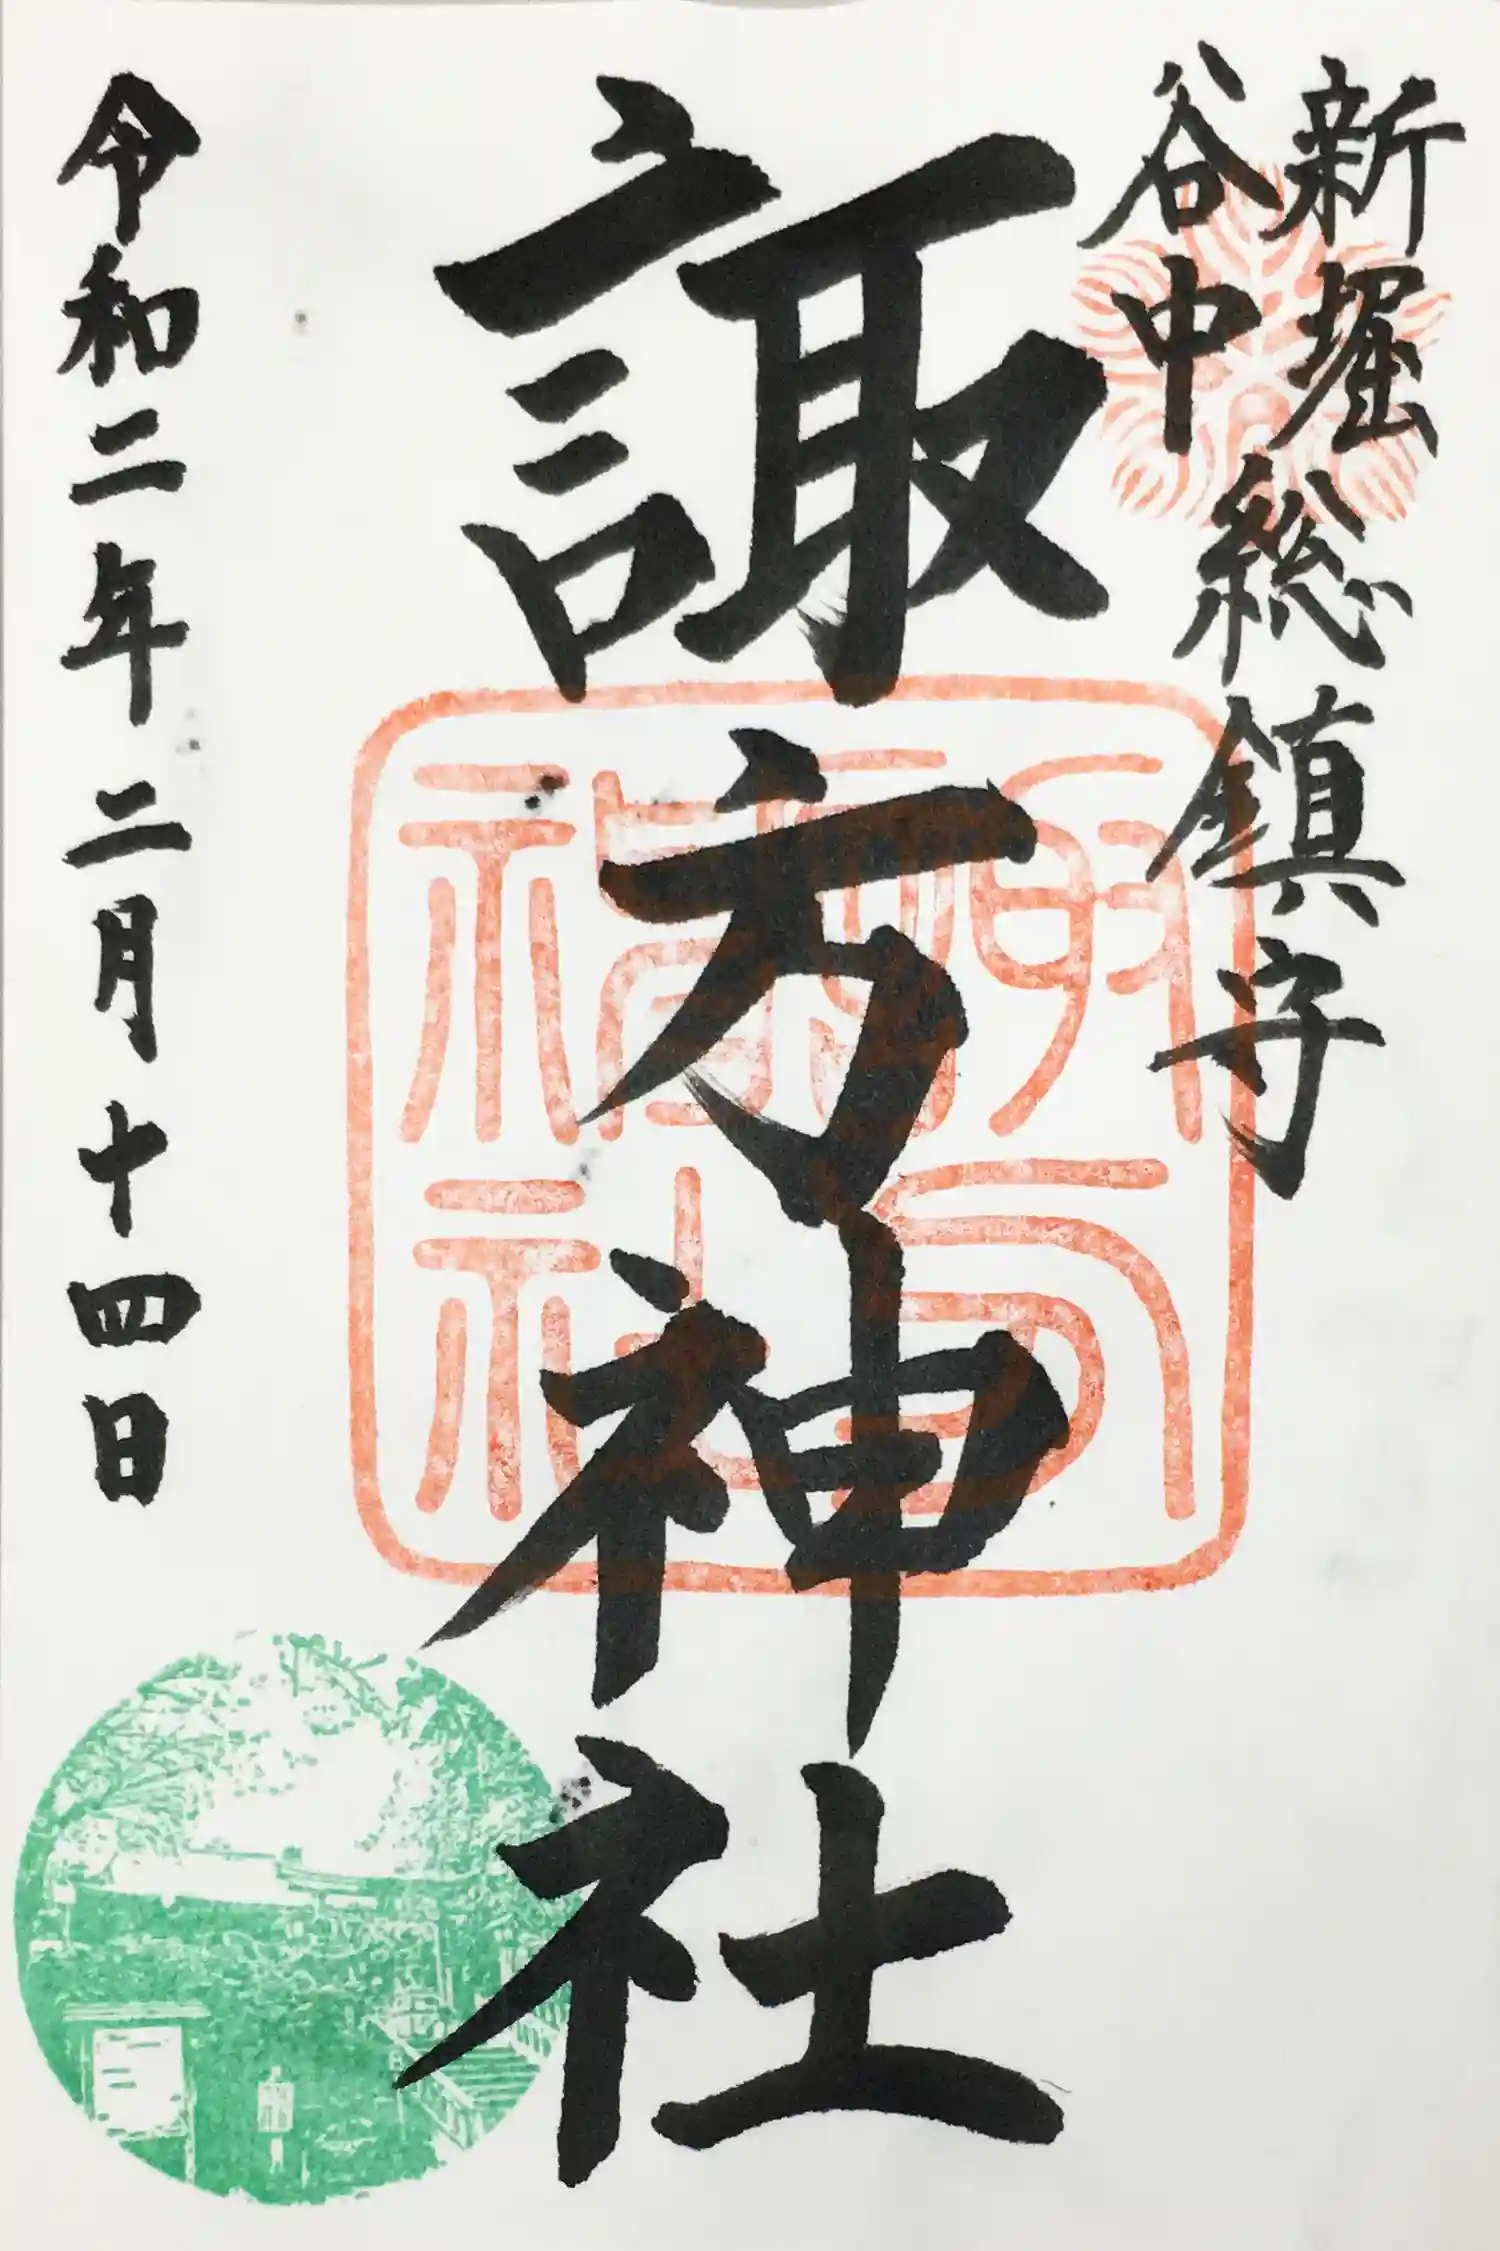 新堀
谷中
総鎮守
諏方神社
諏方神社
令和二年二月十四日